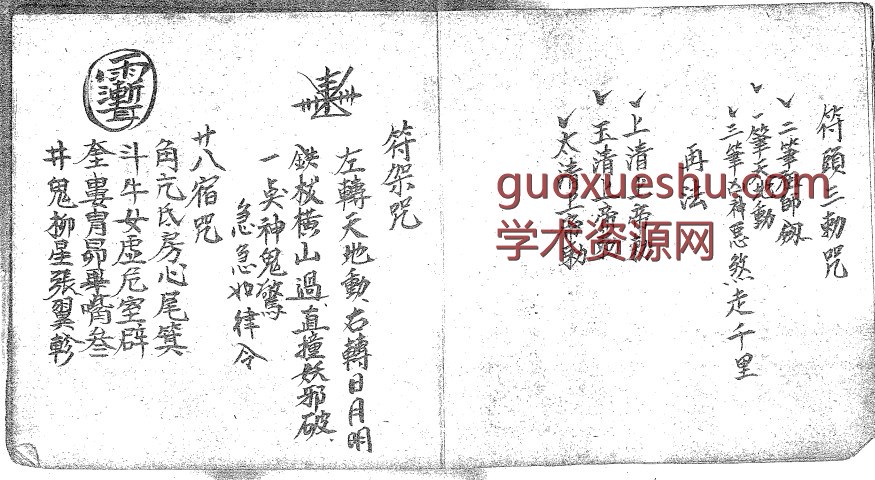 符頭三勅咒
二筆祖師劍
一筆天地動
三筆 惡煞走千里
再法
上清上帝勅
玉清上帝
太清上帝勅
符架咒
左轉天地動、右轉日月明
鉄杖橫山過、直撞妖邪破
一点神鬼驚
急急如律令
廿八宿咒
角亢氐房心尾箕
斗牛女虛危室辟
奎婁胃昴畢嘴叁
井鬼柳星張翼軫
guoxueshu.com
学术资源网